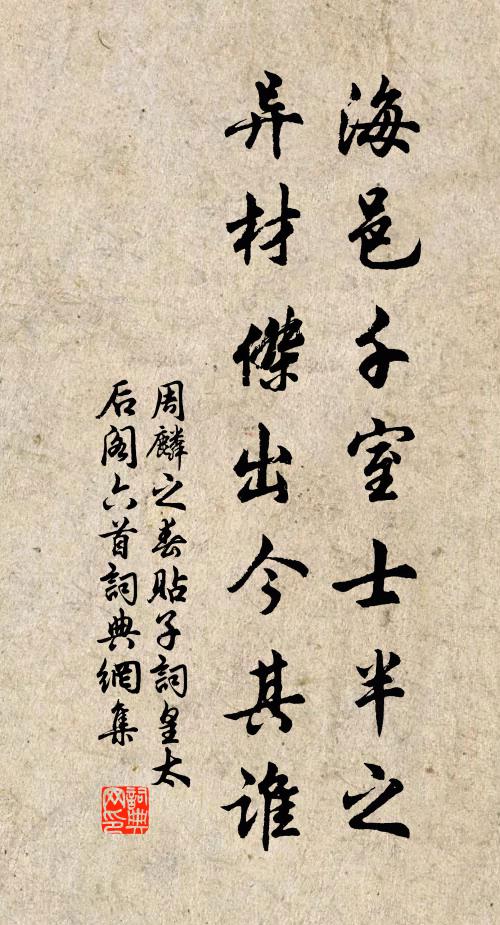 海邑千室士半之
异材傑出今其誰
周麟之春貼子詞皇太
后閣六首詞典網集
詞典
网印